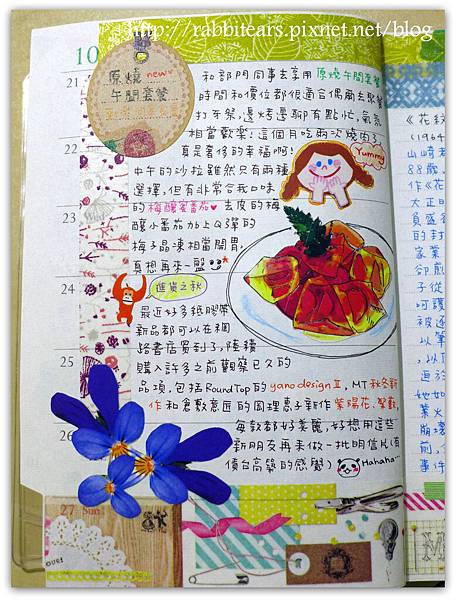 http://rabbitears.pixnet.net/blog
10
21
原燒 new
午間套餐
和部門同事去享用原燒午間套餐
時間和價位都很適合偶爾去聚餐
打牙祭,邊烤邊聊有點忙,氣氛
相當歡樂!這個月吃兩次燒肉了
真是奢侈的幸福啊!
Yummy
中午的沙拉雖然只有兩種
選擇,但有非常合我口味
的梅釀蜜番茄♥去皮的梅
釀小番茄加上Q彈的
梅子晶凍相當開胃,
真想再來一盤
23
24
進貨之秋
最近好多紙膠帶
新品都可以在網
路書店買到了,陸續
購入許多之前觀察已久的
品項,包括Round Top的yano design II, MT秋冬新
作和倉敷意匠的園理惠子新作紫陽花、琴歌,
每款都好美麗,好想用這些
新朋友再來做一批明信片(有
債台高築的感覺)
Hahaha...
25
26
27 Sun
《花紋
(1964
山崎
88歲,
作《花
大正
員盛
的封
家業
卻煎
子從
呵護
被逐
以筆
,以
迴於
她如
業火
崩壞
前,
事件